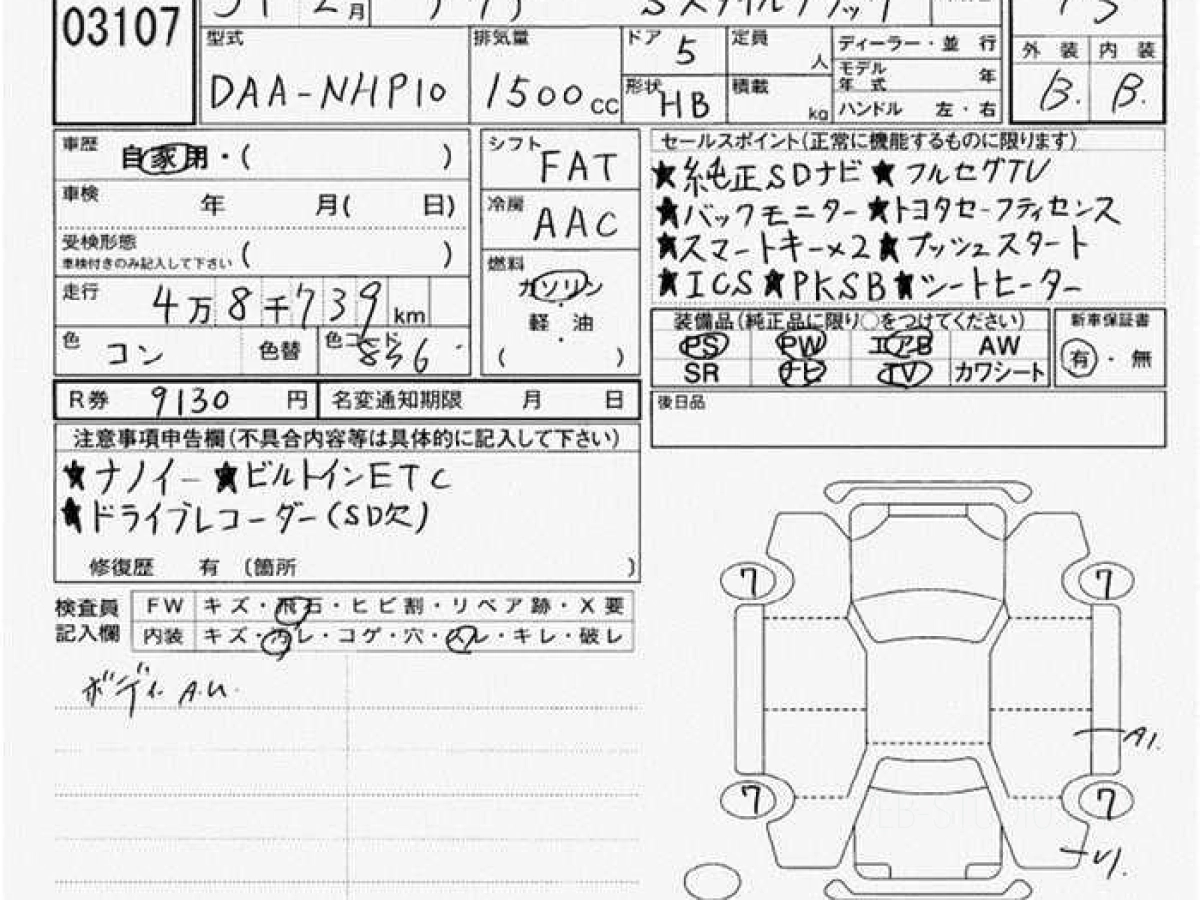 03107
月
Sスタイルブラック
型式
DAA-NHP10
排気量
1500 CC
ドア 5
形状 HB
定員 人
積載 kg
ディーラー・並 行
モデル年式 年
ハンドル 左・右
外 装 内 装
B. B.
車歴 自家用・( )
車検 年 月( 日)
受検形態 ( )
車検付きのみ記入して下さい
走行 4万8千739km
色 コン 色替 色コード 856
シフト FAT
冷房 AAC
燃料
ガソリン
・
軽 油
・
( )
セールスポイント(正常に機能するものに限ります)
★純正SDナビ★フルセグTV
★バックモニター★トヨタセーフティセンス
★スマートキー×2★プッシュスタート
★ICS★PKSB★シートヒーター
装備品(純正品に限り○をつけてください)
PS PW エアB AW
SR ナビ TV カワシート
新車保証書
有・無
後日品
R券 9130 円 名変通知期限 月 日
注意事項申告欄(不具合内容等は具体的に記入して下さい)
★ナノイー★ビルトインETC
★ドライブレコーダー(SD欠)
修復歴 有 (箇所 )
検査員記入欄
FW キズ・飛石・ヒビ割・リペア跡・X要
内装 キズ・汚レ・コゲ・穴・スレ・キレ・破レ
ボディ A.U.
7 7
A1.
7 7
U1.